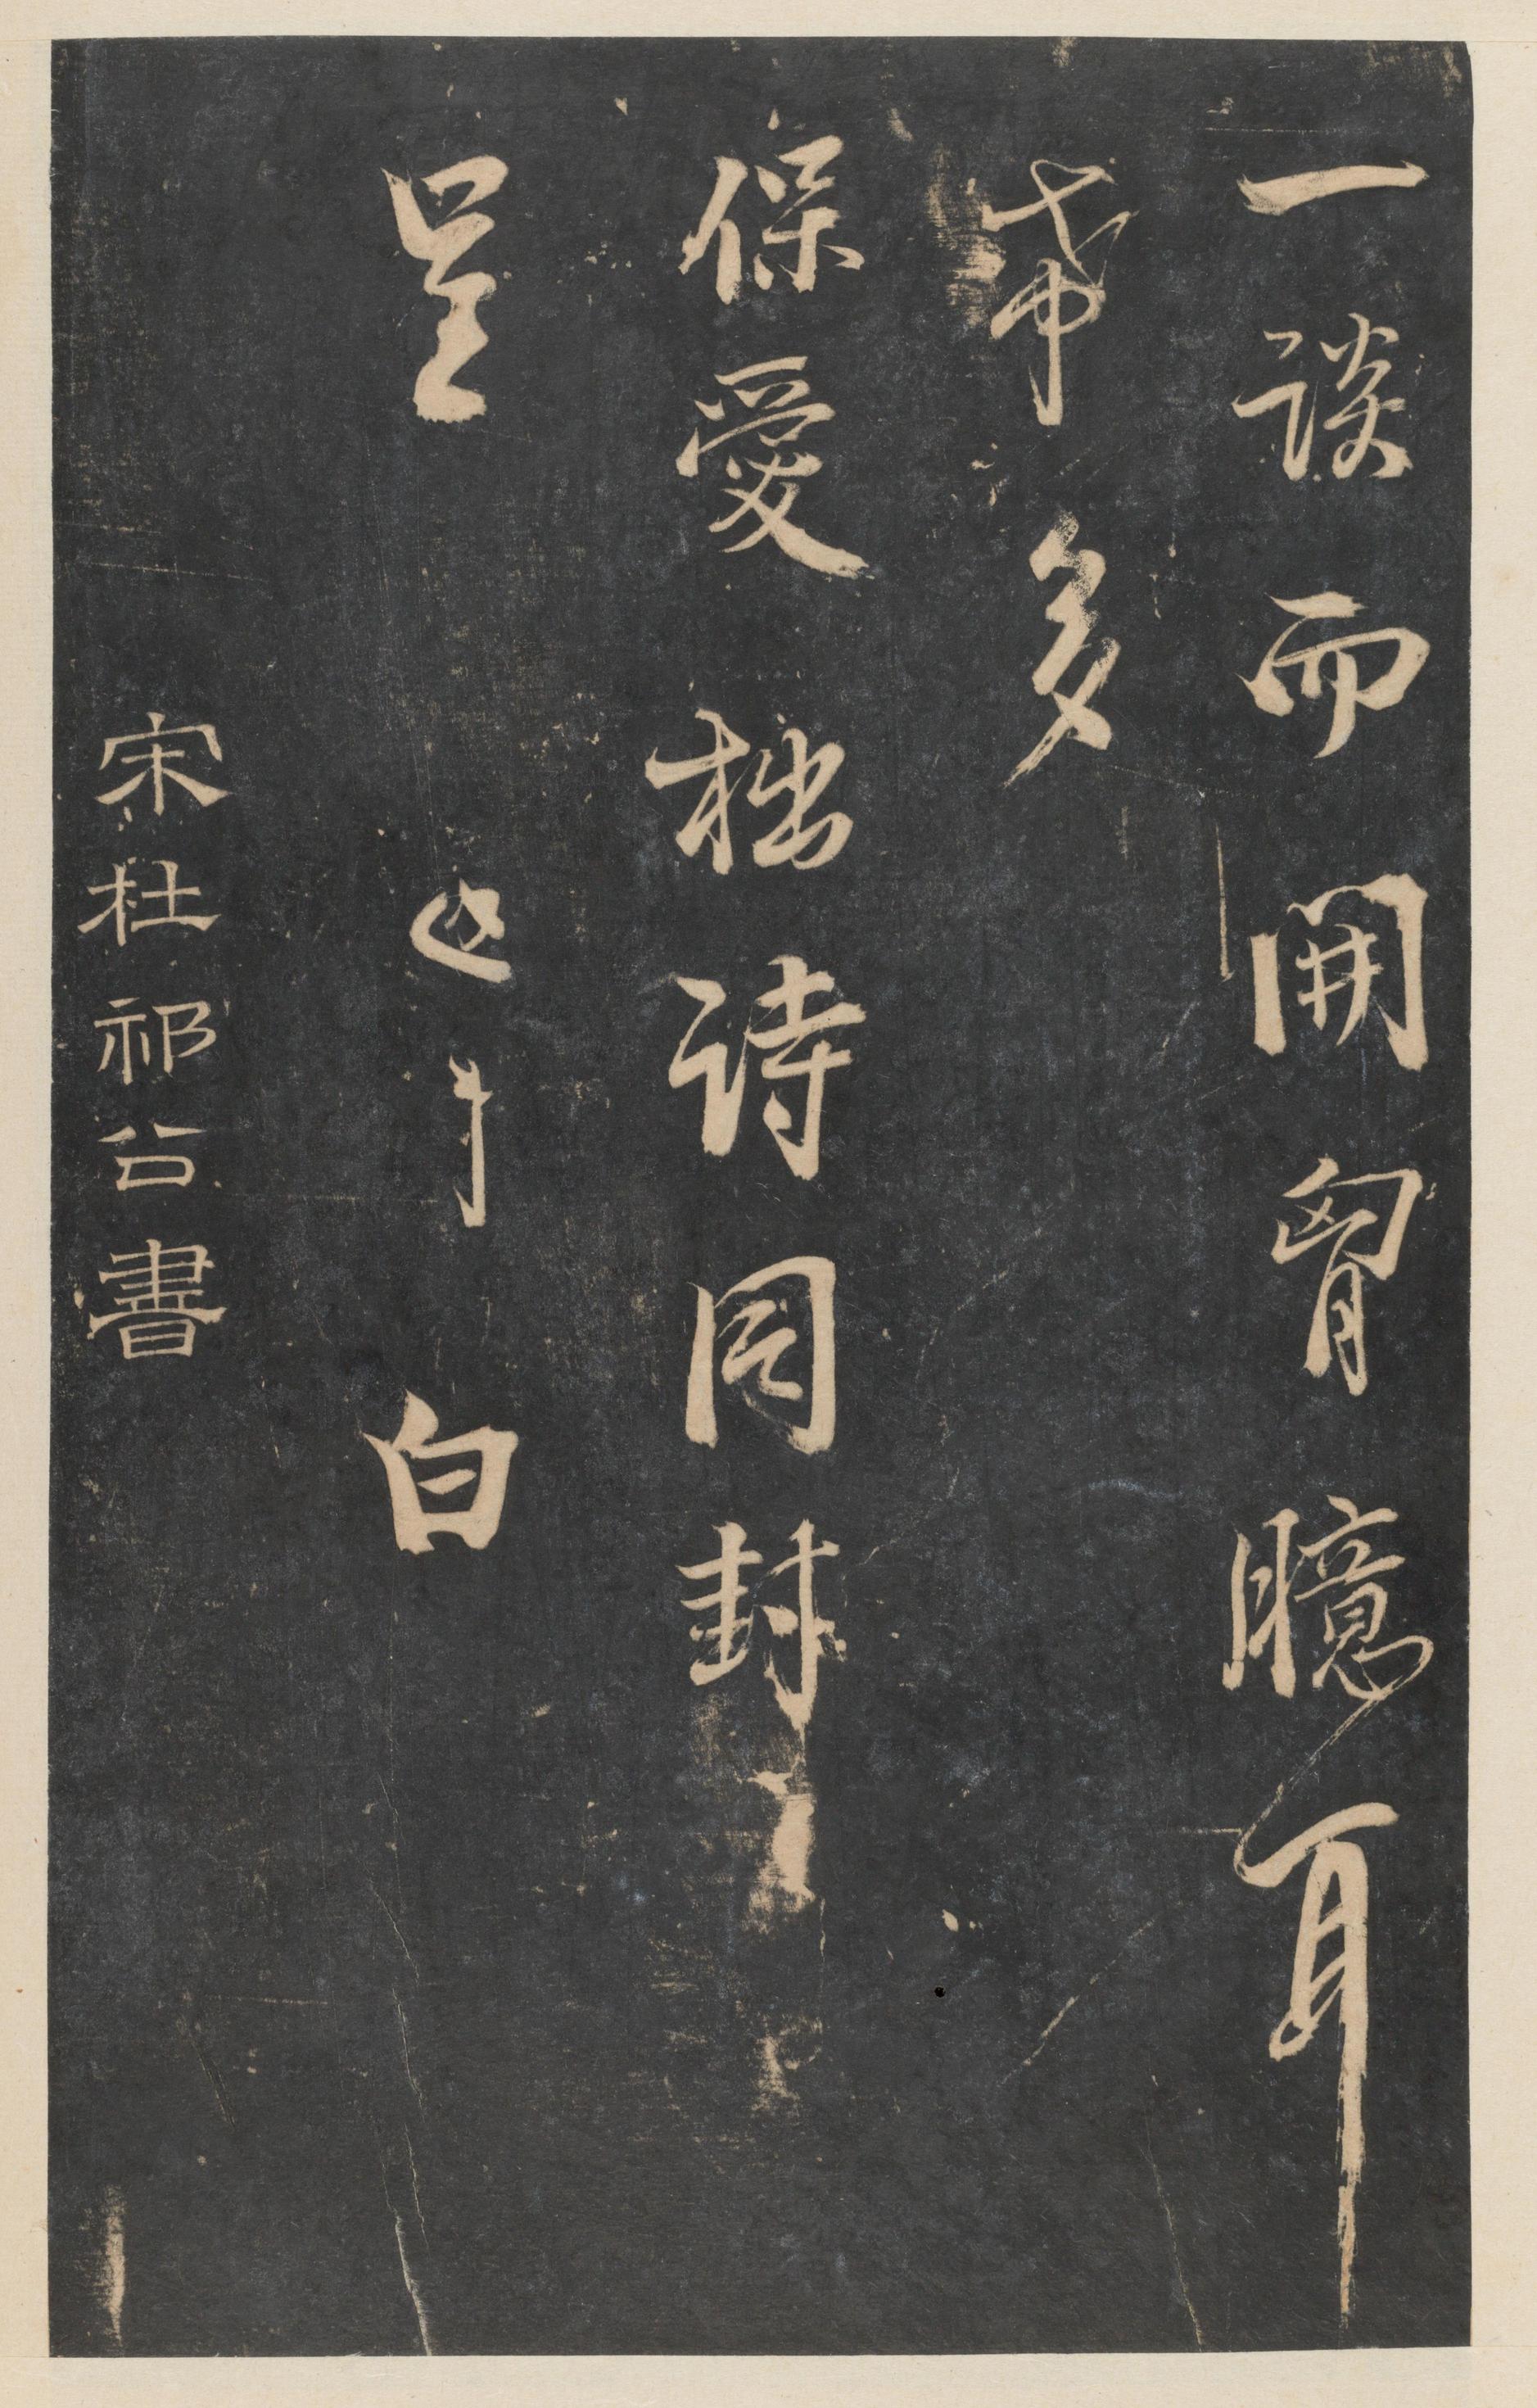 一談而開胷臆耳
希多
保愛拙詩同封
呈
白
宋杜祁公書